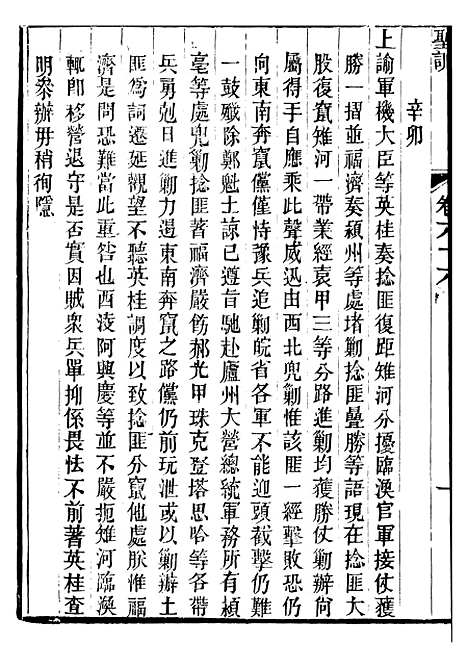 聖訓
卷六十八
一
辛卯
上諭軍機大臣等英桂奏捻匪復距雉河分擾臨渙官軍接仗獲
勝一摺並福濟奏潁州等處堵勦捻匪疊勝等語現在捻匪大
股復竄雉河一帶業經袁甲三等分路進勦均獲勝仗勦辦尚
屬得手自應乘此聲威迅由西北兜勦惟該匪一經擊敗恐仍
向東南奔竄儻僅恃豫兵追勦皖省各軍不能迎頭截擊仍難
一鼓殲除鄭魁士諒已遵旨馳赴廬州大營總統軍務所有潁
亳等處兜勦捻匪著福濟嚴飭郝光甲珠克登塔思哈等各帶
兵勇剋日進勦力遏東南奔竄之路儻仍前玩泄或以勦辦土
匪爲詞遷延觀望不聽英桂調度以致捻匪分竄他處朕惟福
濟是問恐難當此重咎也西淩阿興慶等並不嚴扼雉河臨渙
輒卽移營退守是否實因賊衆兵單抑係畏怯不前著英桂查
明叅辦毋稍徇隱